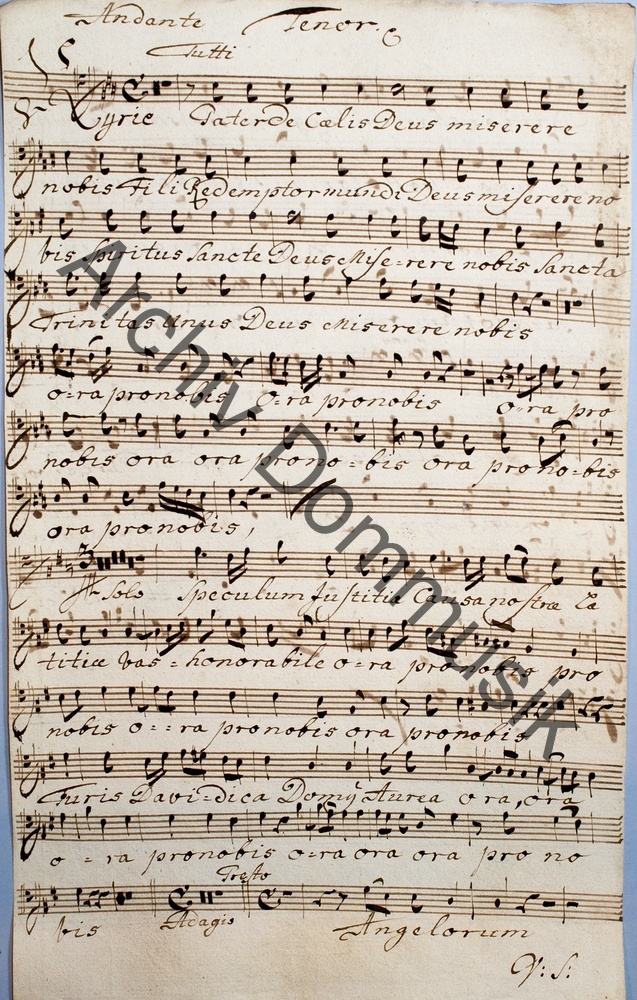 Andante Tenor.
Tutti
Kyrie Pater de Cœlis Deus miserere
nobis Fili Redemptor mundi Deus miserere no
bis Spiritus Sancte Deus Mise=rere nobis Sancta
Trinitas Unus Deus Miserere nobis
o=ra pro nobis O=ra pro nobis o=ra pro
nobis ora ora pro no=bis ora pro no=bis
ora pro nobis,
3
Solo Speculum Justitiæ Causa nostræ Læ
titiæ Vas=honorabile o=ra pro nobis pro
nobis o==ra pro nobis ora pro nobis
Turis Davi=dica Domus Aurea ora, ora
o=ra pro nobis o=ra ora ora pro no
Presto
bis Adagio Angelorum
V: S:
Archiv Dommusik